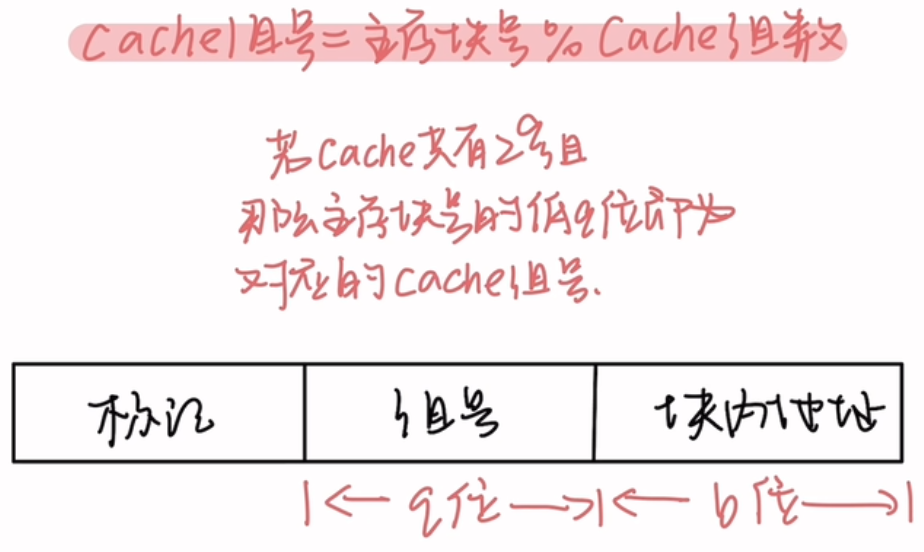 Cache组号=主存块号%Cache组数
若Cache共有2^q组
那么主存块号的低q位即为
对应的Cache组号.
标记 组号 块内地址
|← q位 →|← b位 →|